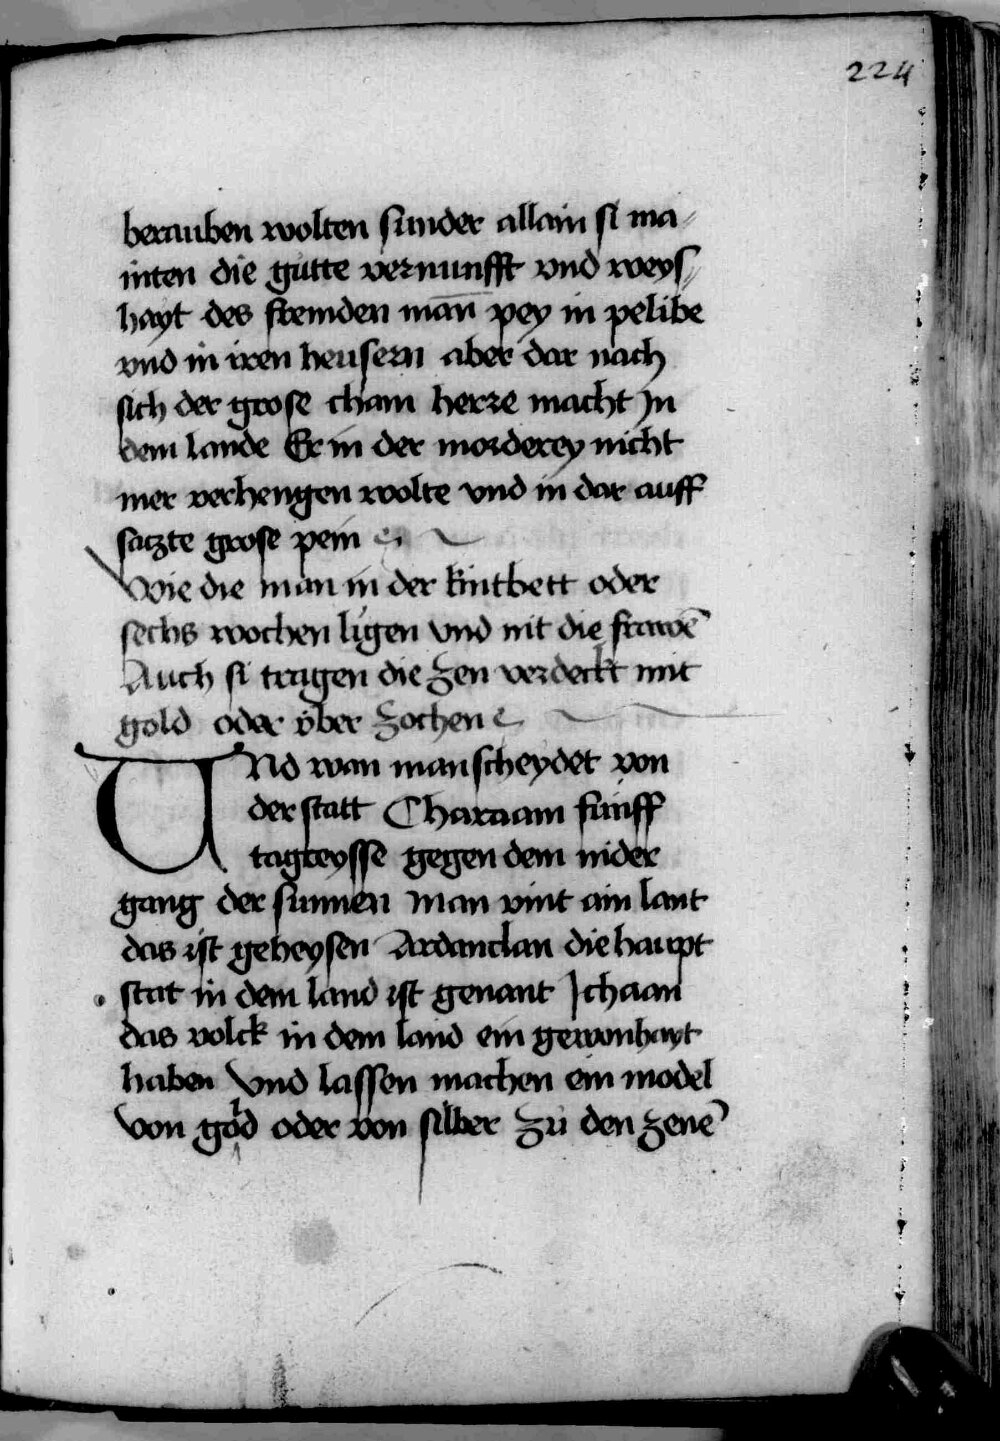 224
berauben wolten sunder allain si ma-
inten die gutte vernunfft vnd weys-
hayt des fremden man̄ pey in pelibe
vnd in iren heusern aber dar nach
sich der grose cham herre macht Jn
dem lande Er in der morderey nicht
mer verhengen wolte vnd in dar auff
saczte grose pein
Wie die man in der kintbett oder
sechs wochen ligen vnd nit die frawē
Auch si tragen die zen verdeckt mit
gold oder vber zochen
VNd wan man scheydet von
der statt Charaam funff
tagreysse gegen dem nider
gang der sunnen man vint ain lant
das ist geheysen Ardandan die haupt
stat in dem land ist genant Jchaan
das volck in dem land ein gewonhayt
haben Vnd lassen machen ein model
von gold oder von silber zu den zenē